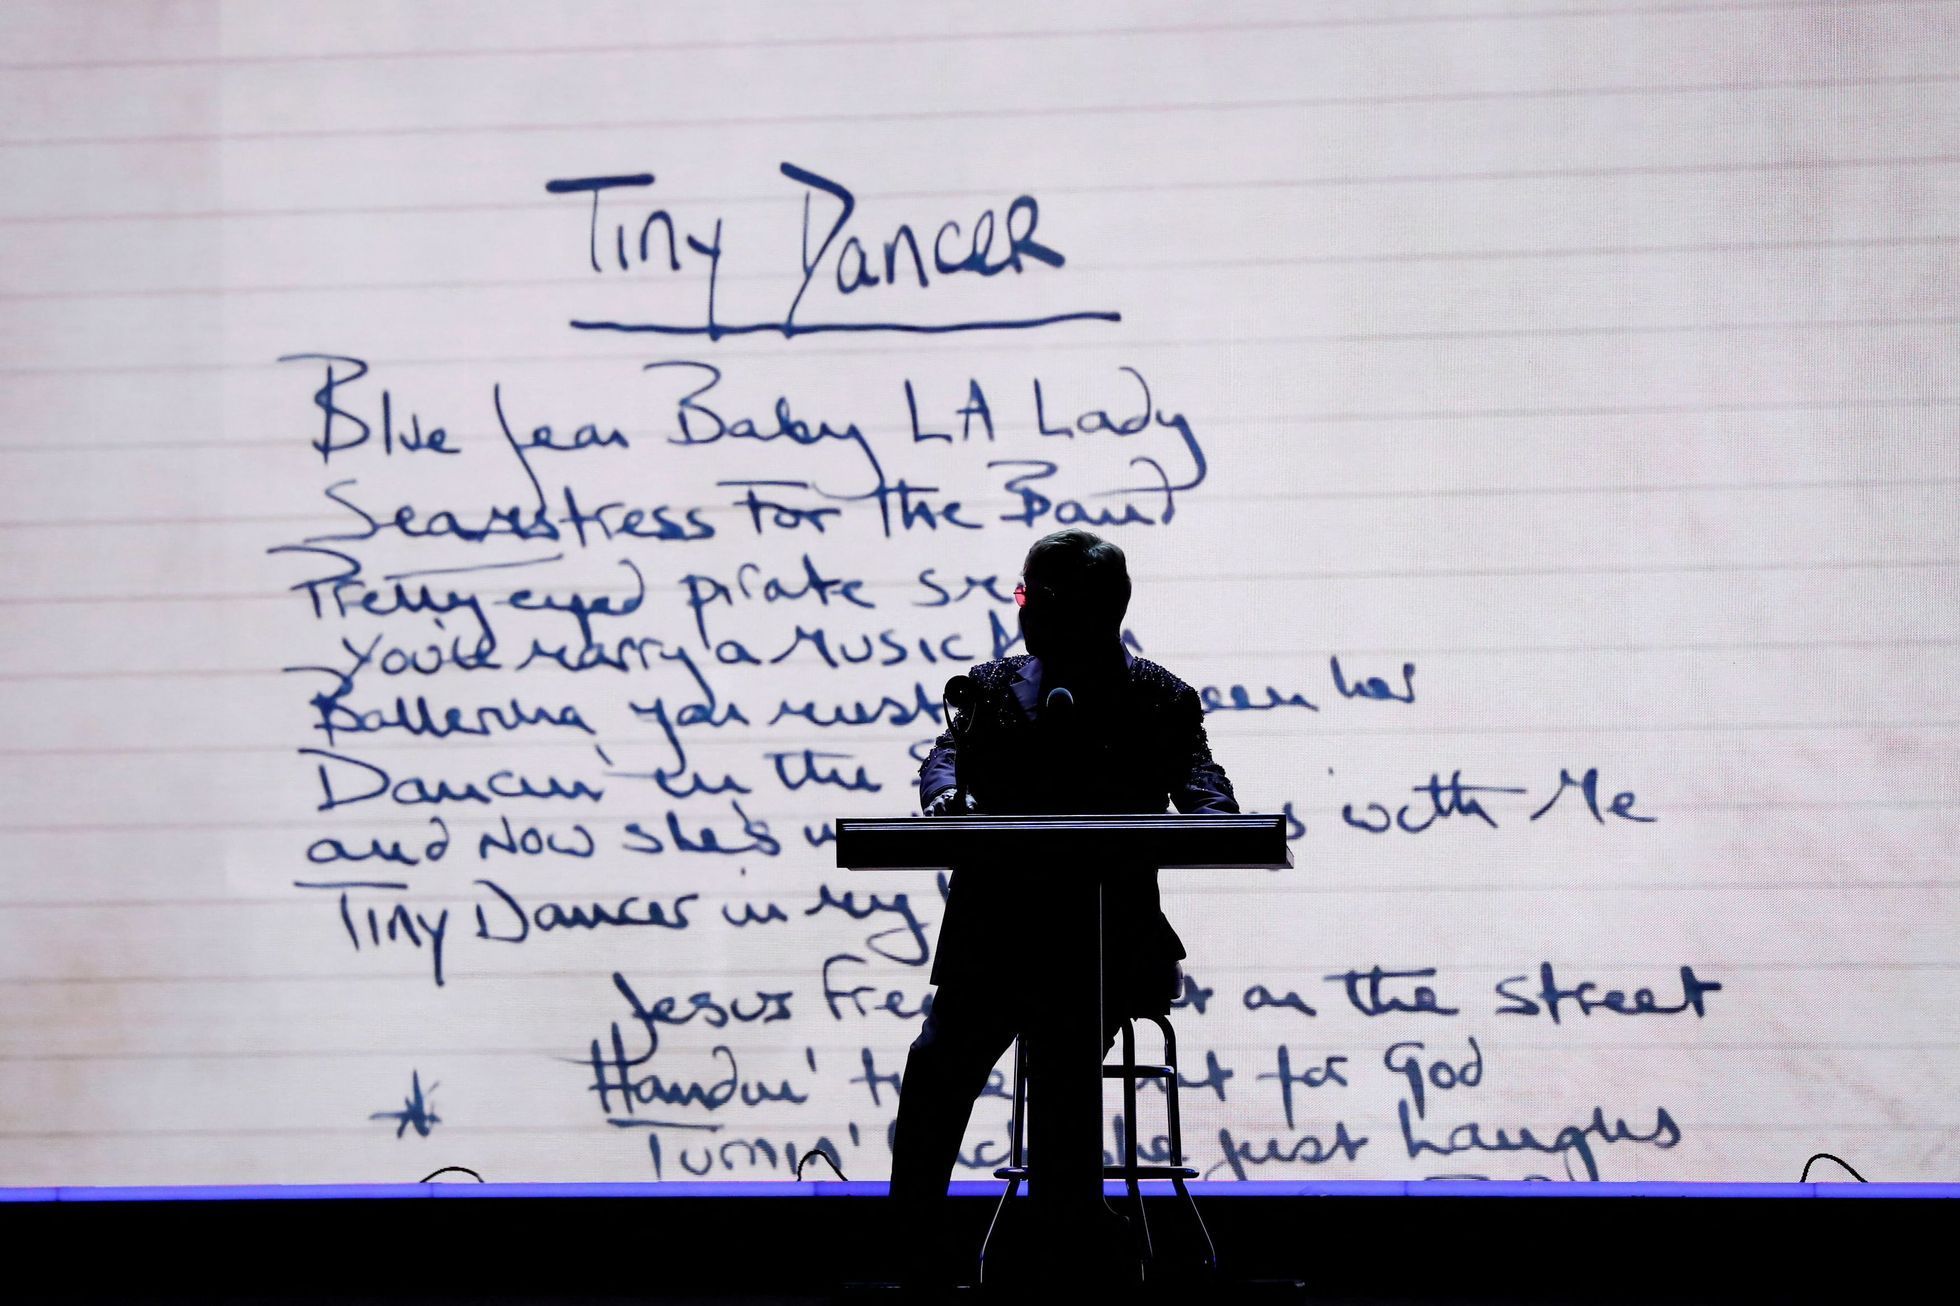 Tiny Dancer
Blue Jean Baby LA Lady
Seamstress For the Band
Pretty-eyed pirate
You'll marry a Music
Ballerina, you must her
Dancin' in the
and Now she's with Me
Tiny Dancer in my
Jesus on the street
Handin' for God
Turnin' she just laughs